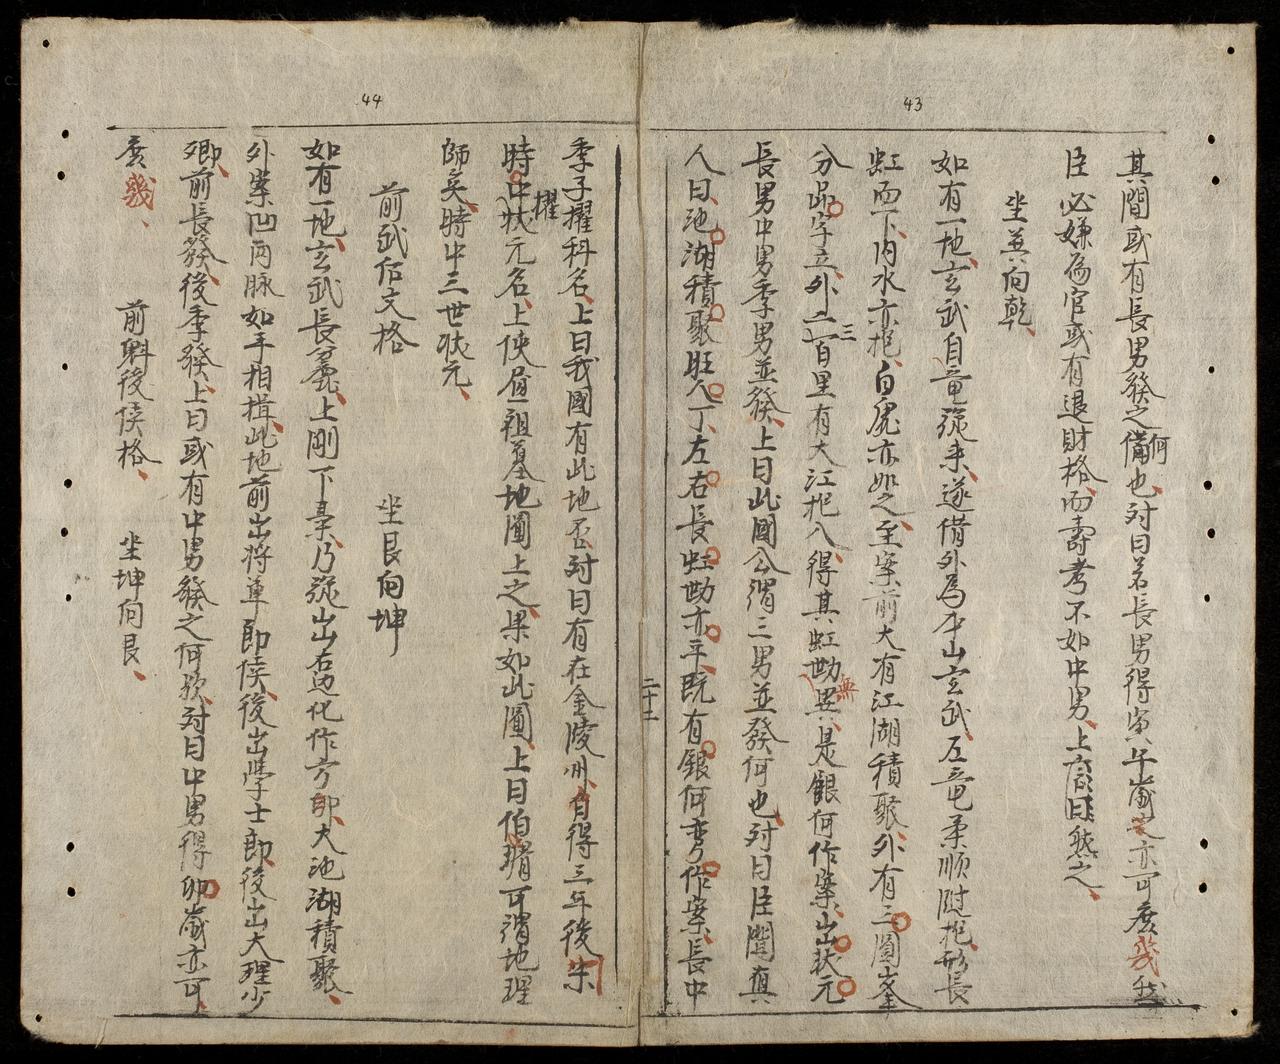 43
其間或有長男發之備何也対曰若長男得寅午歲之亦可庶幾哉
臣必嫌爲官或有退財格而壽考不如中男上
曰然之
坐巽向乾
如有一地玄武自竜
来遂借外
山玄武左竜柔順
抱形長
虹而下内水亦抱白虎亦如之至案前大有江湖積聚外有三圓峯
分品字立外二三百里有大江抱入得其虹
無異是銀何作案出状元
長男中男季男並發上曰此國公謂三男並發何也対曰臣聞真
人曰池湖積聚旺人丁左右長虹
亦平既有銀何
作案長中
二十二
44
季子擢科名上曰我國有此地否対曰有在金陵州自得三年後宋
時中擢状元名上使
祖墓地圖上之果如此圖上曰伯
可謂地理
師矣時中三世状元
前武佰文格 坐艮向坤
如有一地玄武長
麗上剛下柔乃
出右边化作方印大池湖積聚
外案凹両脉如手相揖此地前出将軍即侯後出學士郎後出大理少
卿前長發後季發上曰或有中男發之何款対曰中男得卯歲亦可
庶幾 前
後侯格 坐坤向艮